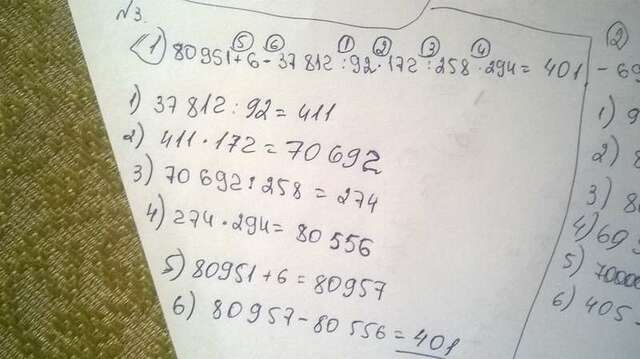 №3.
⑤ ⑥ ① ② ③ ④
1) 80951+6-37812:92·172:258·294=401
1) 37812:92=411
2) 411·172=70692
3) 70692:258=274
4) 274·294=80556
5) 80951+6=80957
6) 80957-80556=401
②
-69
1) 9
2) 8
3) 8
4) 69
5) 70000
6) 405-